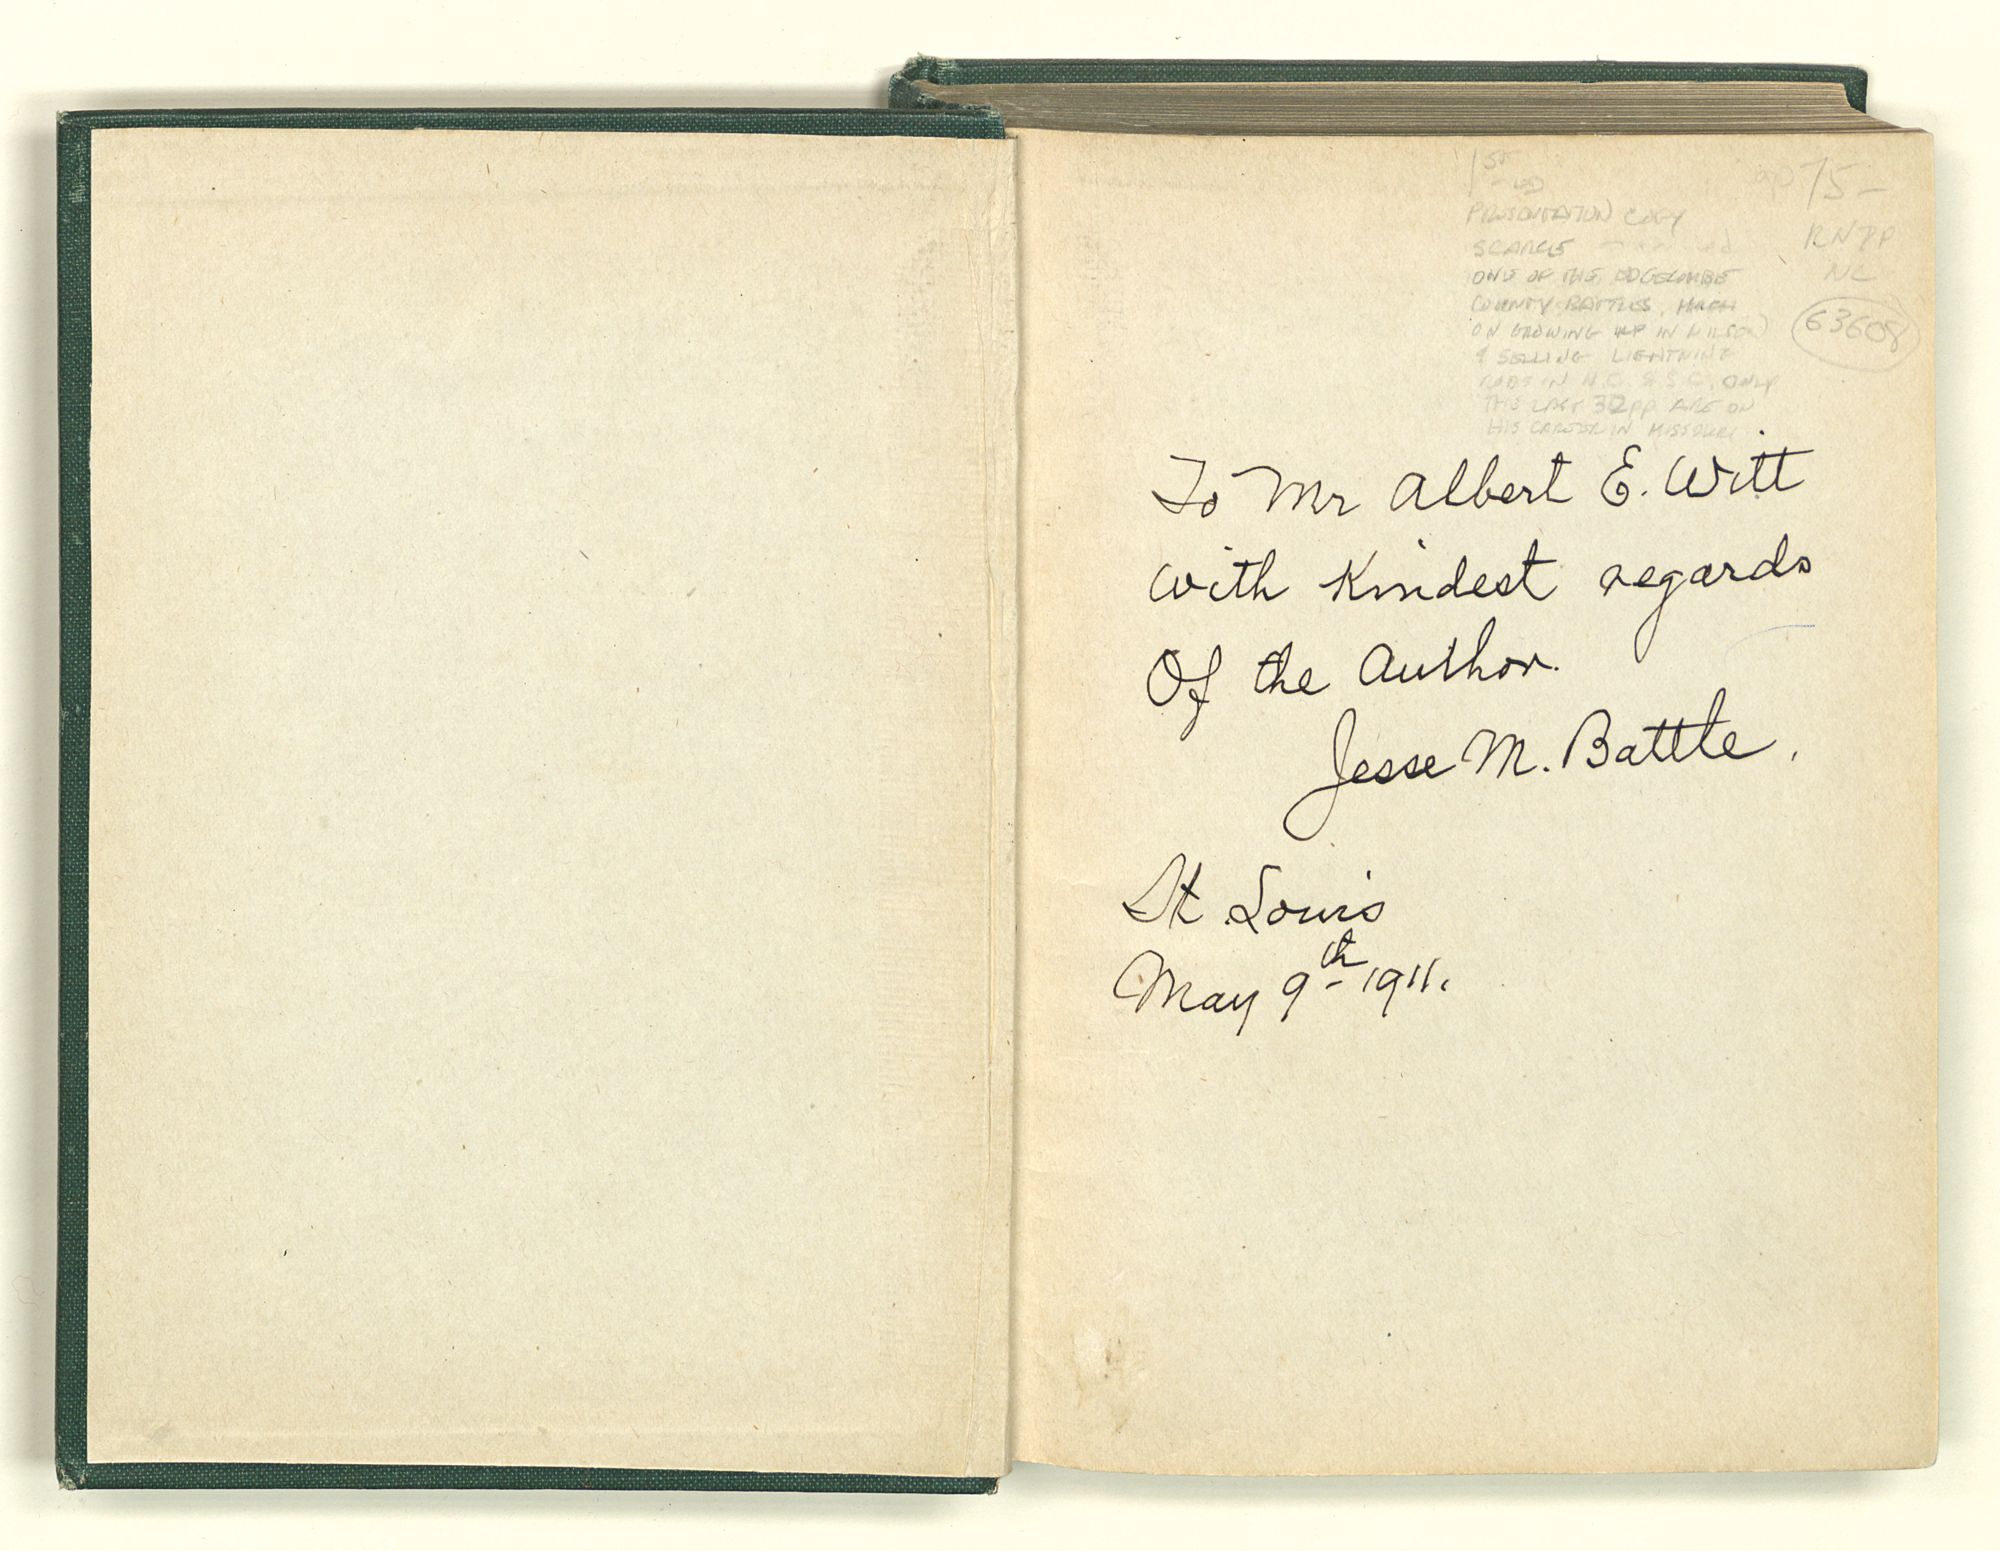 1st ed
PRESENTATION COPY
SCARCE
ONE OF THE EDGECOMBE
COUNTY BATTLES, MUCH
ON GROWING UP IN WILSON
& SELLING LIGHTNING
RODS IN N.C. & S.C. ONLY
THE LAST 32 pp ARE ON
HIS CAREER IN MISSOURI
75-
NC
63608
To Mr Albert E. Witt
With Kindest regards
Of the Author.
Jesse M. Battle.
St Louis
May 9th 1911.